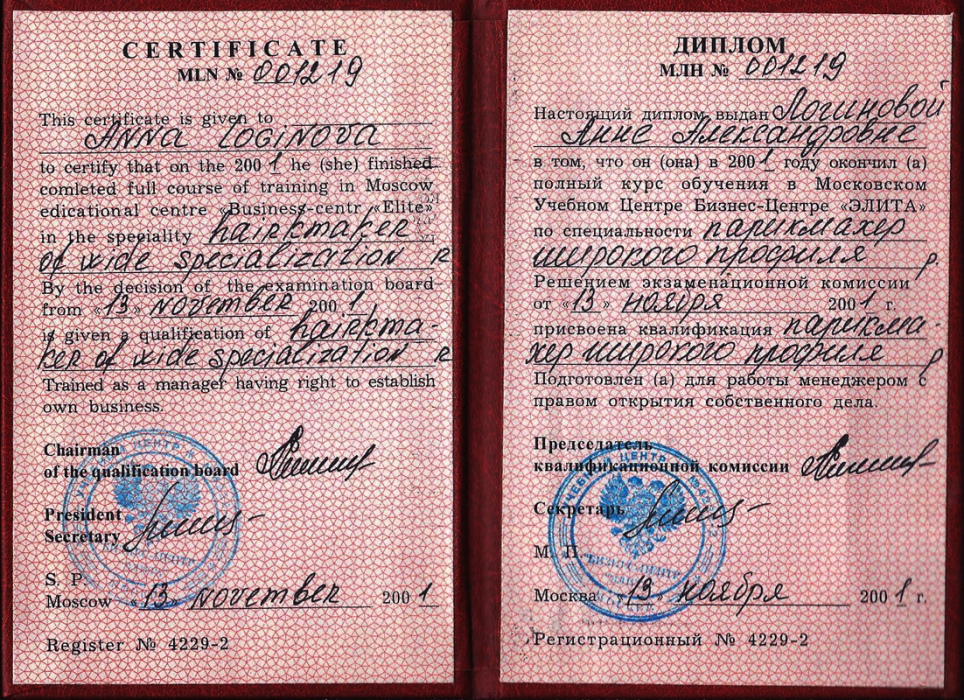 CERTIFICATE
MLN № 001219
This certificate is given to
ANNA LOGINOVA
to certify that on the 2001 he (she) finished
comleted full course of training in Moscow
edicational centre «Business-centr «Elite»
in the speciality hairkmaker
of wide specialization R
By the decision of the examination board
from «13» november 2001
is given a qualification of hairkma-
ker of wide specialization R
Trained as a manager having right to establish
own business.
Chairman
of the qualification board
President
Secretary
S. P.
Moscow «13 november 2001
Register № 4229-2
ДИПЛОМ
МЛН № 001219
Настоящий диплом выдан Логиновой
Анне Александровне
в том, что он (она) в 2001 году окончил (а)
полный курс обучения в Московском
Учебном Центре Бизнес-Центре «ЭЛИТА»
по специальности парикмахер
широкого профиля р.
Решением экзаменационной комиссии
от «13» ноября 2001 г.
присвоена квалификация парикма-
хер широкого профиля р
Подготовлен (а) для работы менеджером с
правом открытия собственного дела.
Председатель
квалификационной комиссии
Секретарь
М. П.
Москва «13» ноября 2001 г.
Регистрационный № 4229-2